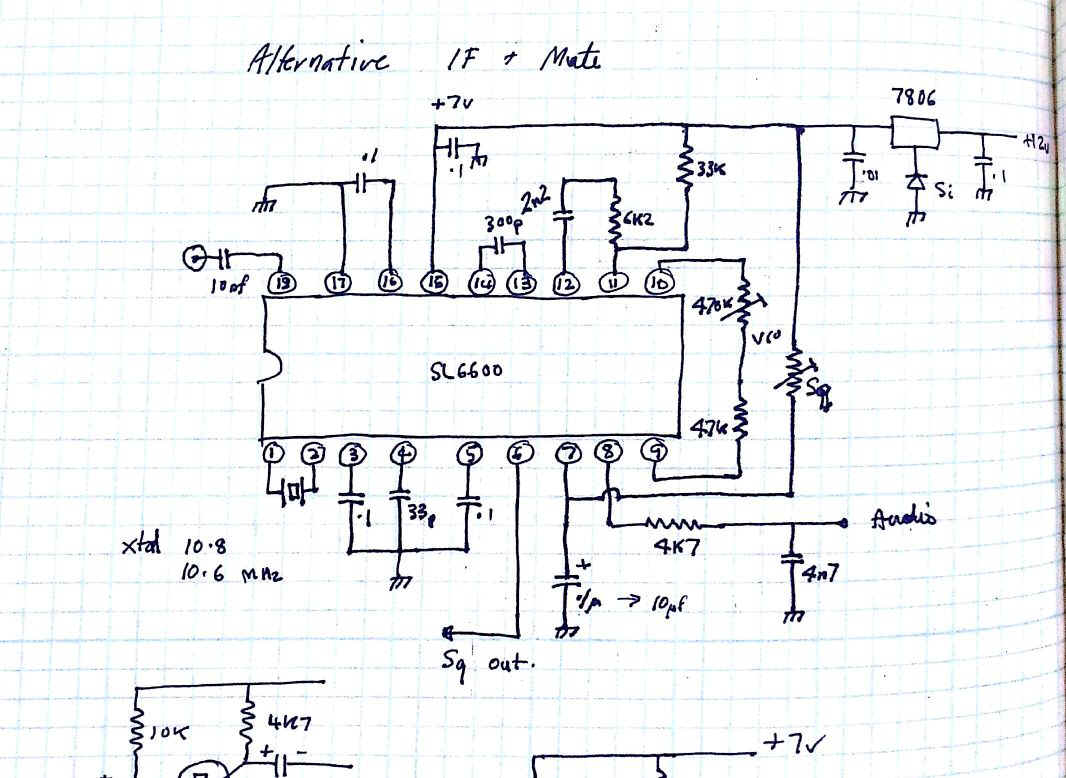 Alternative IF + Mute
+7v
7806
+12v
.1
.1
33K
.01
Si
.1
2n2
300p
6K2
10pf
18
17
16
15
14
13
12
11
10
470K
VCO
SL6600
Sq
47K
1
2
3
4
5
6
7
8
9
.1
33p
.1
Audio
4K7
xtal 10.8
10.6 MHz
+
4n7
→ 10µf
Sq out.
10K
4K7
+ -
+7v
7